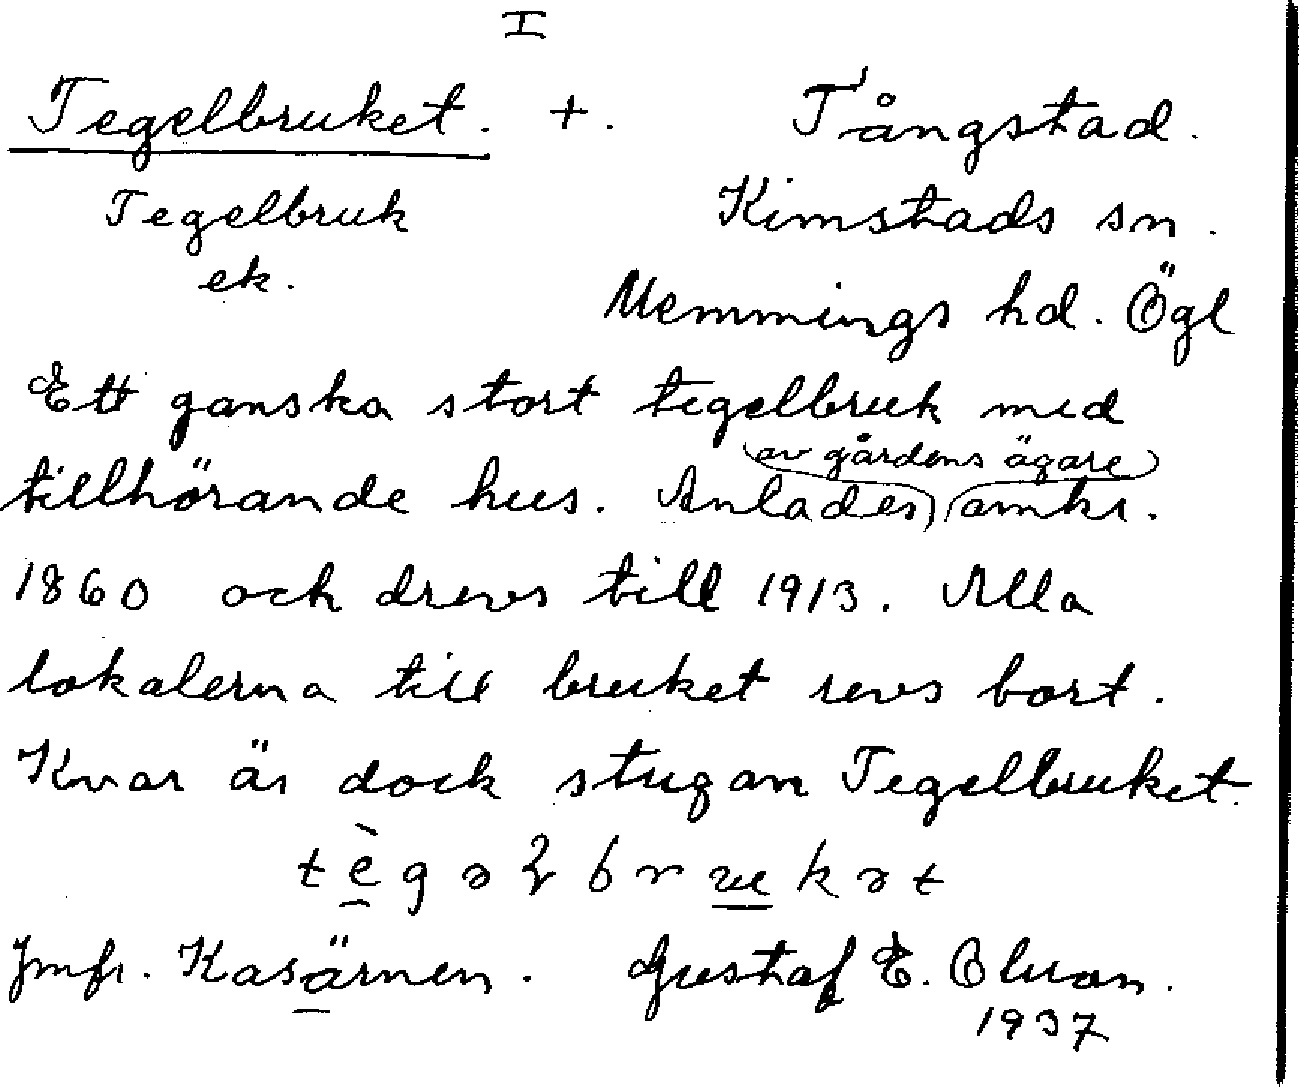 I
Tegelbruket. +. Tångstad.
Tegelbruk Kimstads sn.
ek. Memmings hd. Ögl
Ett ganska stort tegelbruk med
av gårdens ägare
tillhörande hus. Anlades omkr.
1860 och drevs till 1913. Alla
lokalerna till bruket revs bort.
Kvar är dock stugan Tegelbruket.
Jmfr. Kasärnen. Gustaf E.
1937